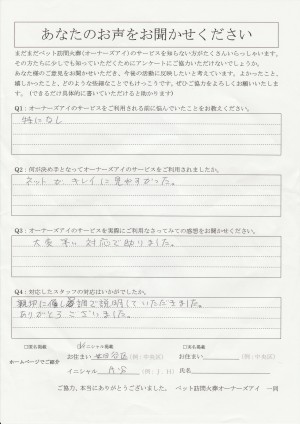 あなたのお声をお聞かせください
まだまだペット訪問火葬(オーナーズアイ)のサービスを知らない方がたくさんいらっしゃいます。
その方たちに少しでも知っていただくためにアンケートにご協力いただけないでしょうか。
あなた様のご意見をお聞かせいただき、今後の活動に反映したいと考えています。よかったこと、
嬉しかったこと、どのような些細なことでもけっこうです。ぜひご協力をよろしくお願いいたします。
(できるだけ具体的に書いていただけると助かります)
Q1:オーナーズアイのサービスをご利用される前に悩んでいたことをお教えください。
特になし
Q2:何が決め手となってオーナーズアイのサービスをご利用されましたか。
ネットが、キレイに見やすかった。
Q3:オーナーズアイのサービスを実際にご利用なさってみての感想をお聞かせください。
対応で助りました。
Q4:対応したスタッフの対応はいかがでしたか。
親切に優しい口調で説明していただきました。
ありがとうございました。
□実名掲載 イニシャル掲載 □実名掲載
ホームページでご紹介
お住まい 世田谷区 (例:中央区) お住まい (例:中央区)
イニシャル (例:I.H) 氏名
ご協力、本当にありがとうございました。 ペット訪問火葬オーナーズアイ 一同